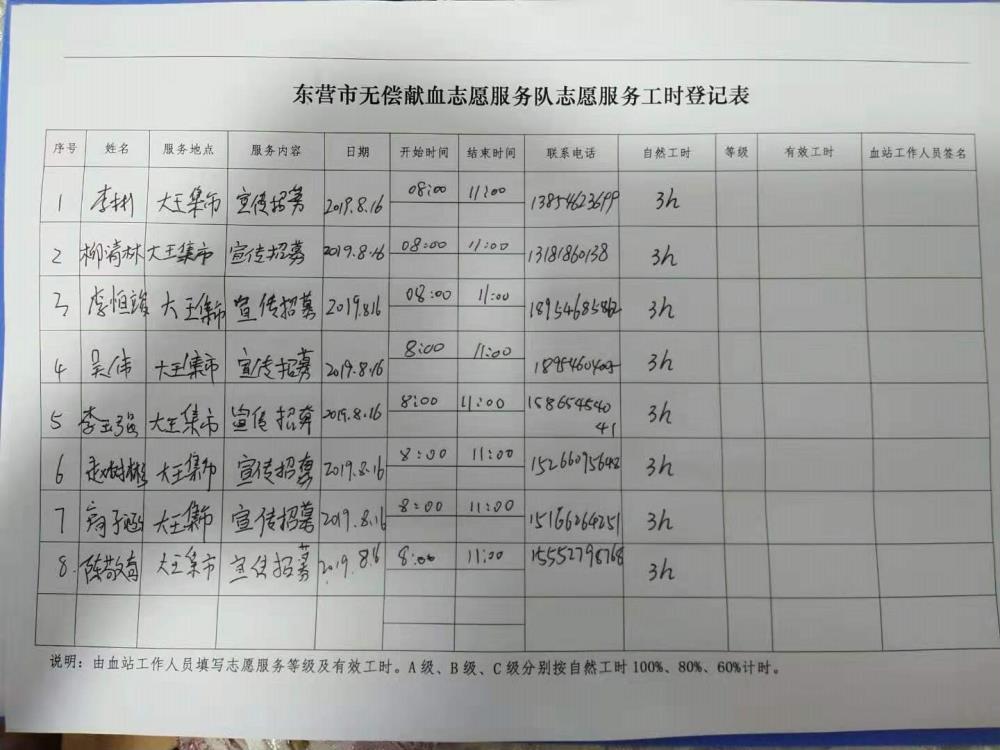 东营市无偿献血志愿服务队志愿服务工时登记表
序号 姓名 服务地点 服务内容 日期 开始时间 结束时间 联系电话 自然工时 等级 有效工时 血站工作人员签名
1 李彬 大王集市 宣传招募 2019.8.16 08:00 11:00 13854623699 3h
2 柳清林 大王集市 宣传招募 2019.8.16 08:00 11:00 13181860138 3h
3 李恒 大王集市 宣传招募 2019.8.16 08:00 11:00 3h
4 吴伟 大王集市 宣传招募 2019.8.16 8:00 11:00 3h
5 李玉强 大王集市 宣传招募 2019.8.16 8:00 11:00 15865454041 3h
6 大王集市 宣传招募 2019.8.16 8:00 11:00 3h
7 大王集市 宣传招募 2019.8.16 8:00 11:00 15166264251 3h
8. 大王集市 宣传招募 2019.8.16 8:00 11:00 15552798768 3h
说明：由血站工作人员填写志愿服务等级及有效工时。A级、B级、C级分别按自然工时100%、80%、60%计时。